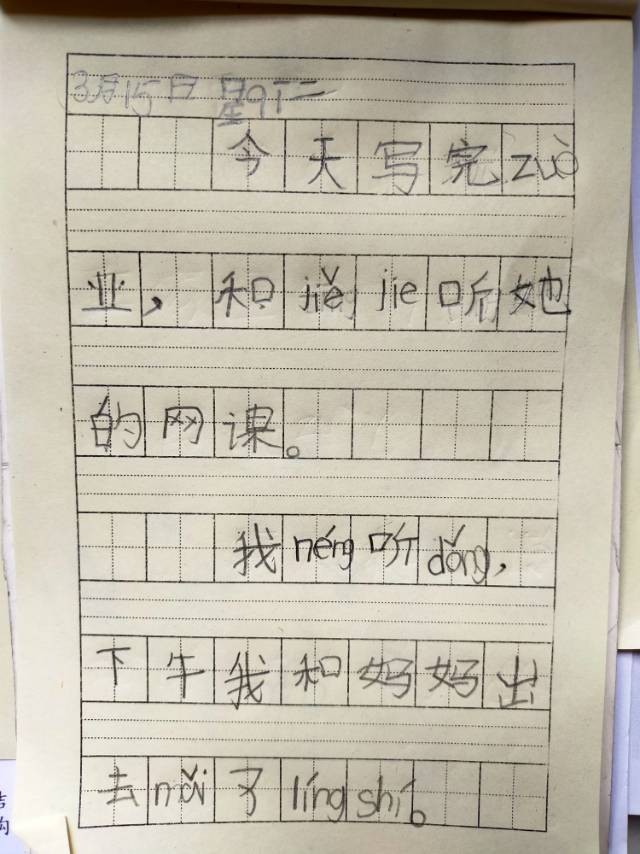 3月15日 星qi二
今天写完zuò
业，和jiě jie听她
的网课。
我néng听dǒng，
下午我和妈妈出
去mǎi了líng shí。